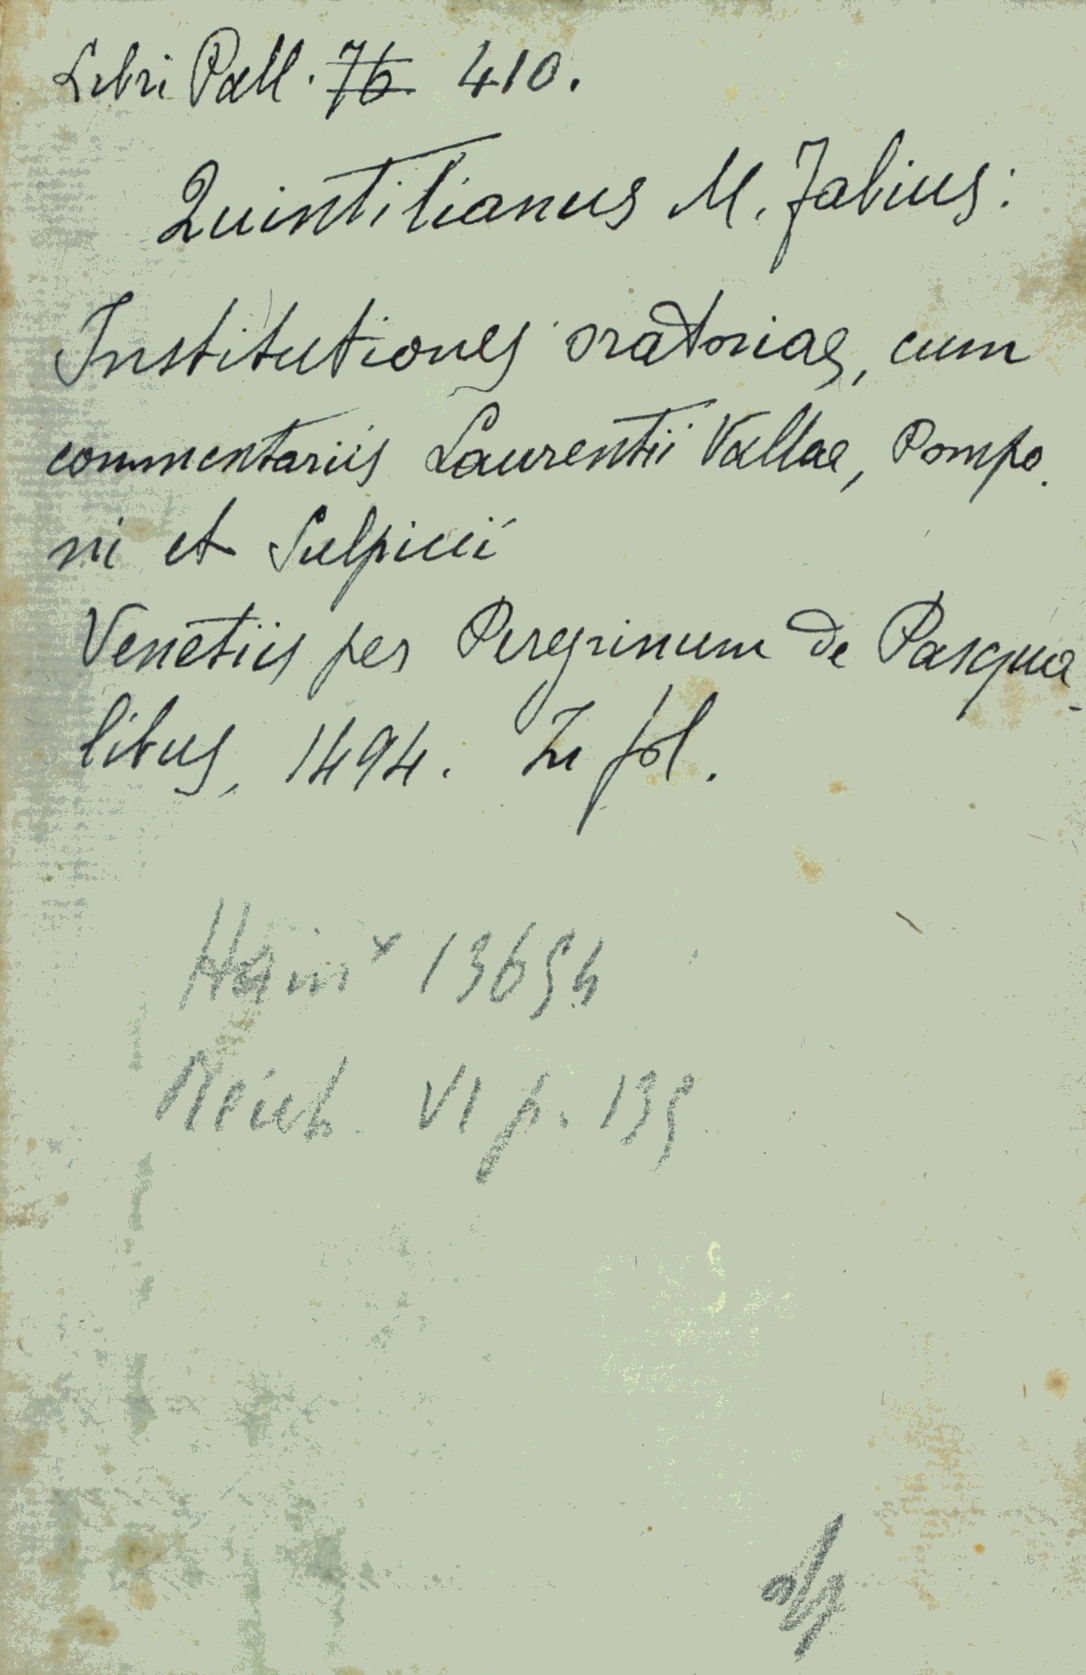 Libri Pall. 76. 410.
Quintilianus M. Fabius:
Institutiones oratoriae, cum
commentariis Laurentii Vallae, Pompo-
ni et Sulpicii
Venetiis per Peregrinum de Pasqua-
libus, 1494. In fol.
Hain* 13654
Reich. VI p. 139